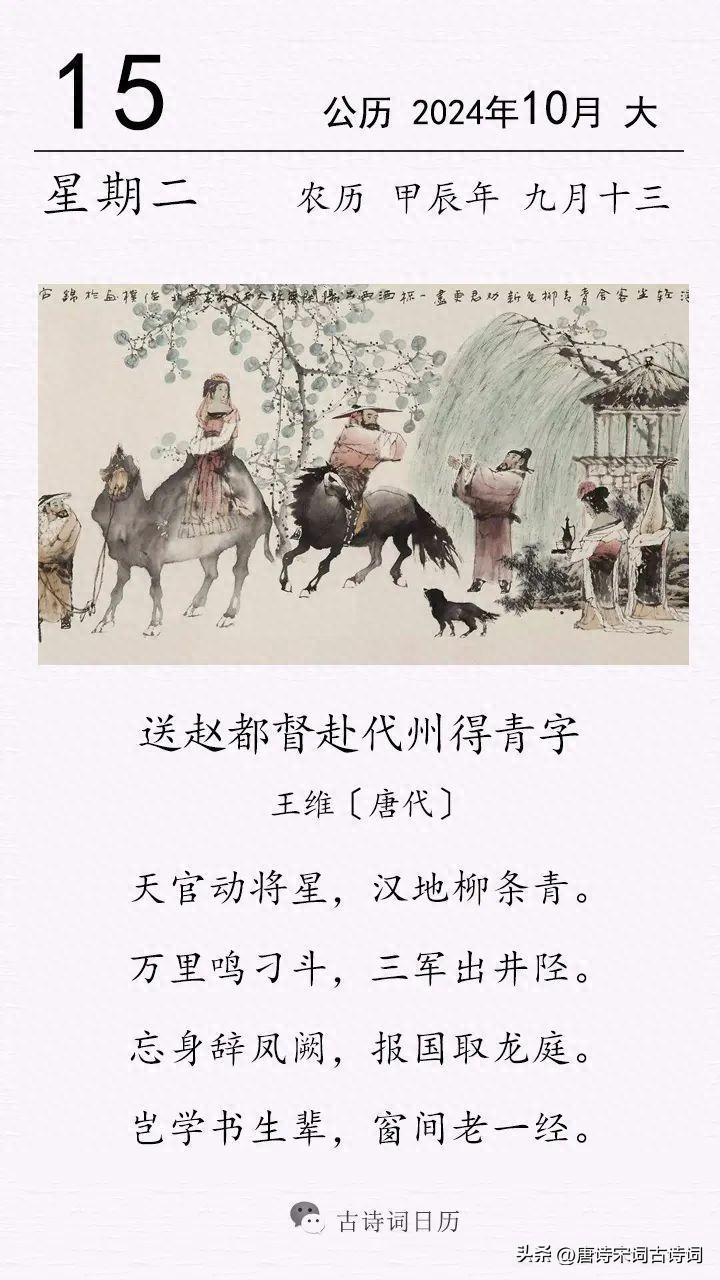 15
公历 2024年10月 大
星期二
农历 甲辰年 九月十三
送赵都督赴代州得青字
王维〔唐代〕
天官动将星，汉地柳条青。
万里鸣刁斗，三军出井陉。
忘身辞凤阙，报国取龙庭。
岂学书生辈，窗间老一经。
古诗词日历
头条 @唐诗宋词古诗词